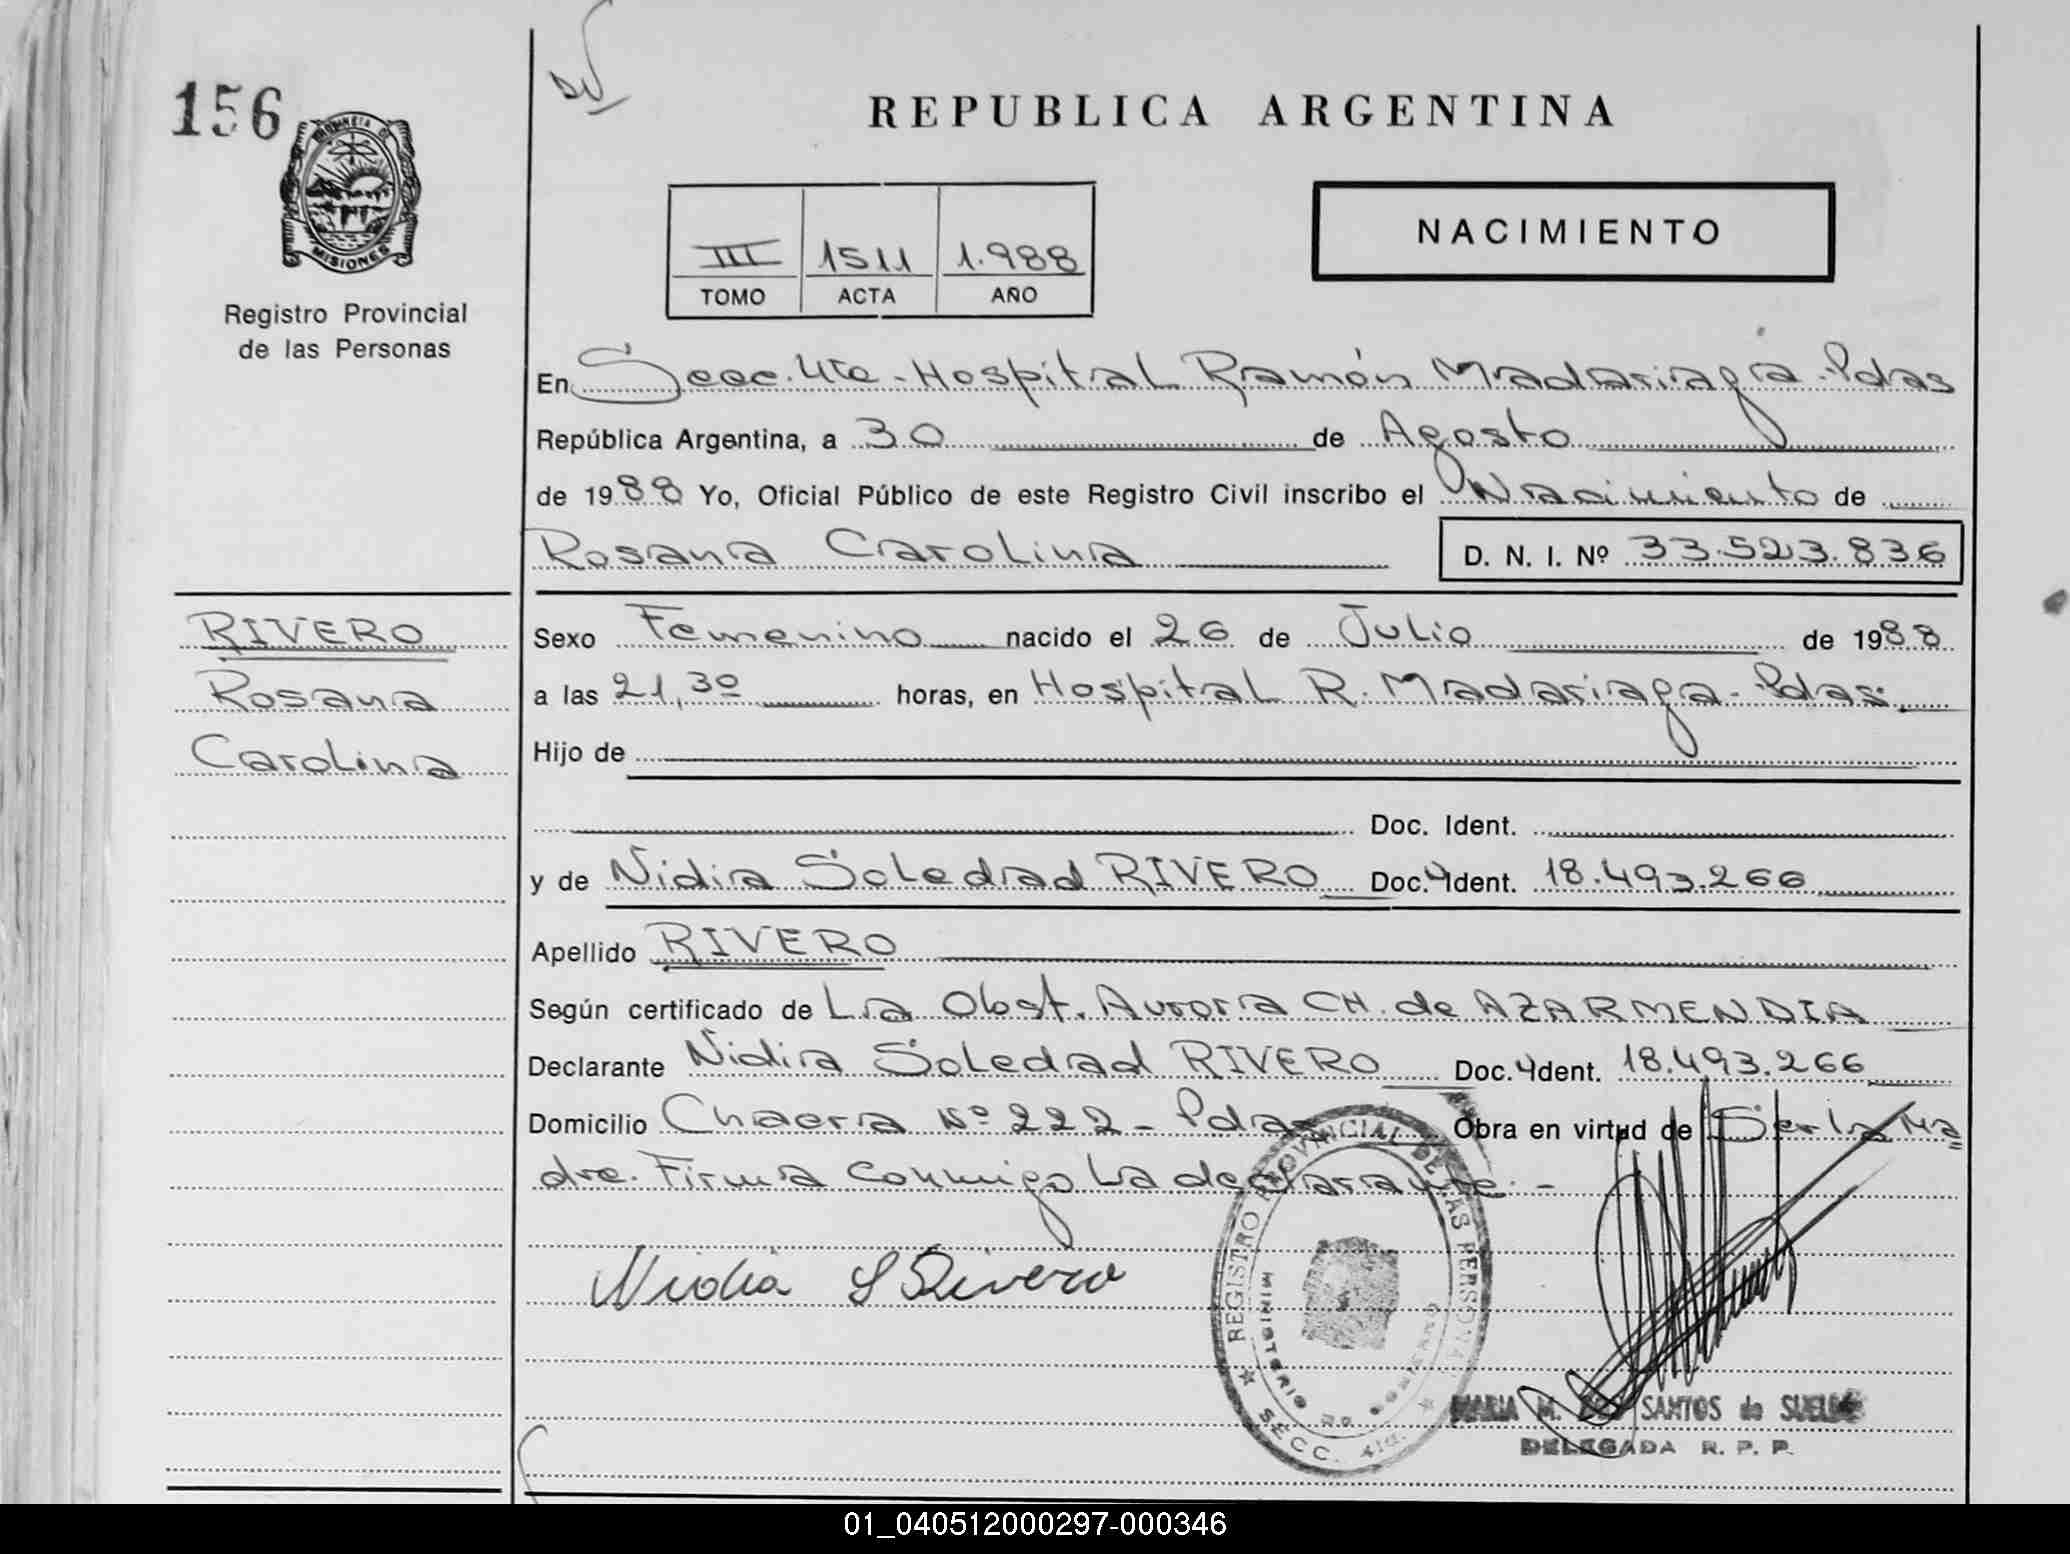 156
REPUBLICA ARGENTINA
PROVINCIA DE
MISIONES
Registro Provincial
de las Personas
III 1511 1.988
TOMO ACTA AÑO
NACIMIENTO
En Secc. 4ta - Hospital Ramón Madariaga - Pdas
República Argentina, a 30 de Agosto
de 1988 Yo, Oficial Público de este Registro Civil inscribo el Nacimiento de
Rosana Carolina D. N. I. Nº 33.523.836
RIVERO
Rosana
Carolina
Sexo Femenino nacido el 26 de Julio de 1988
a las 21,30 horas, en Hospital R. Madariaga - Pdas.
Hijo de
Doc. Ident.
y de Nidia Soledad RIVERO Doc. Ident. 18.493.266
Apellido RIVERO
Según certificado de La Obst. Aurora CH. de AZARMENDIA
Declarante Nidia Soledad RIVERO Doc. Ident. 18.493.266
Domicilio Chacra Nº 222 - Pdas Obra en virtud de Ser la Ma
dre. Firma conmigo la declarante. -
Nidia S Rivero
REGISTRO PROVINCIAL DE LAS PERSONAS
MINISTERIO DE GOBIERNO
SECC. 4ta.
MARIA M. SANTOS de
DELEGADA R. P. P.
01_040512000297-000346